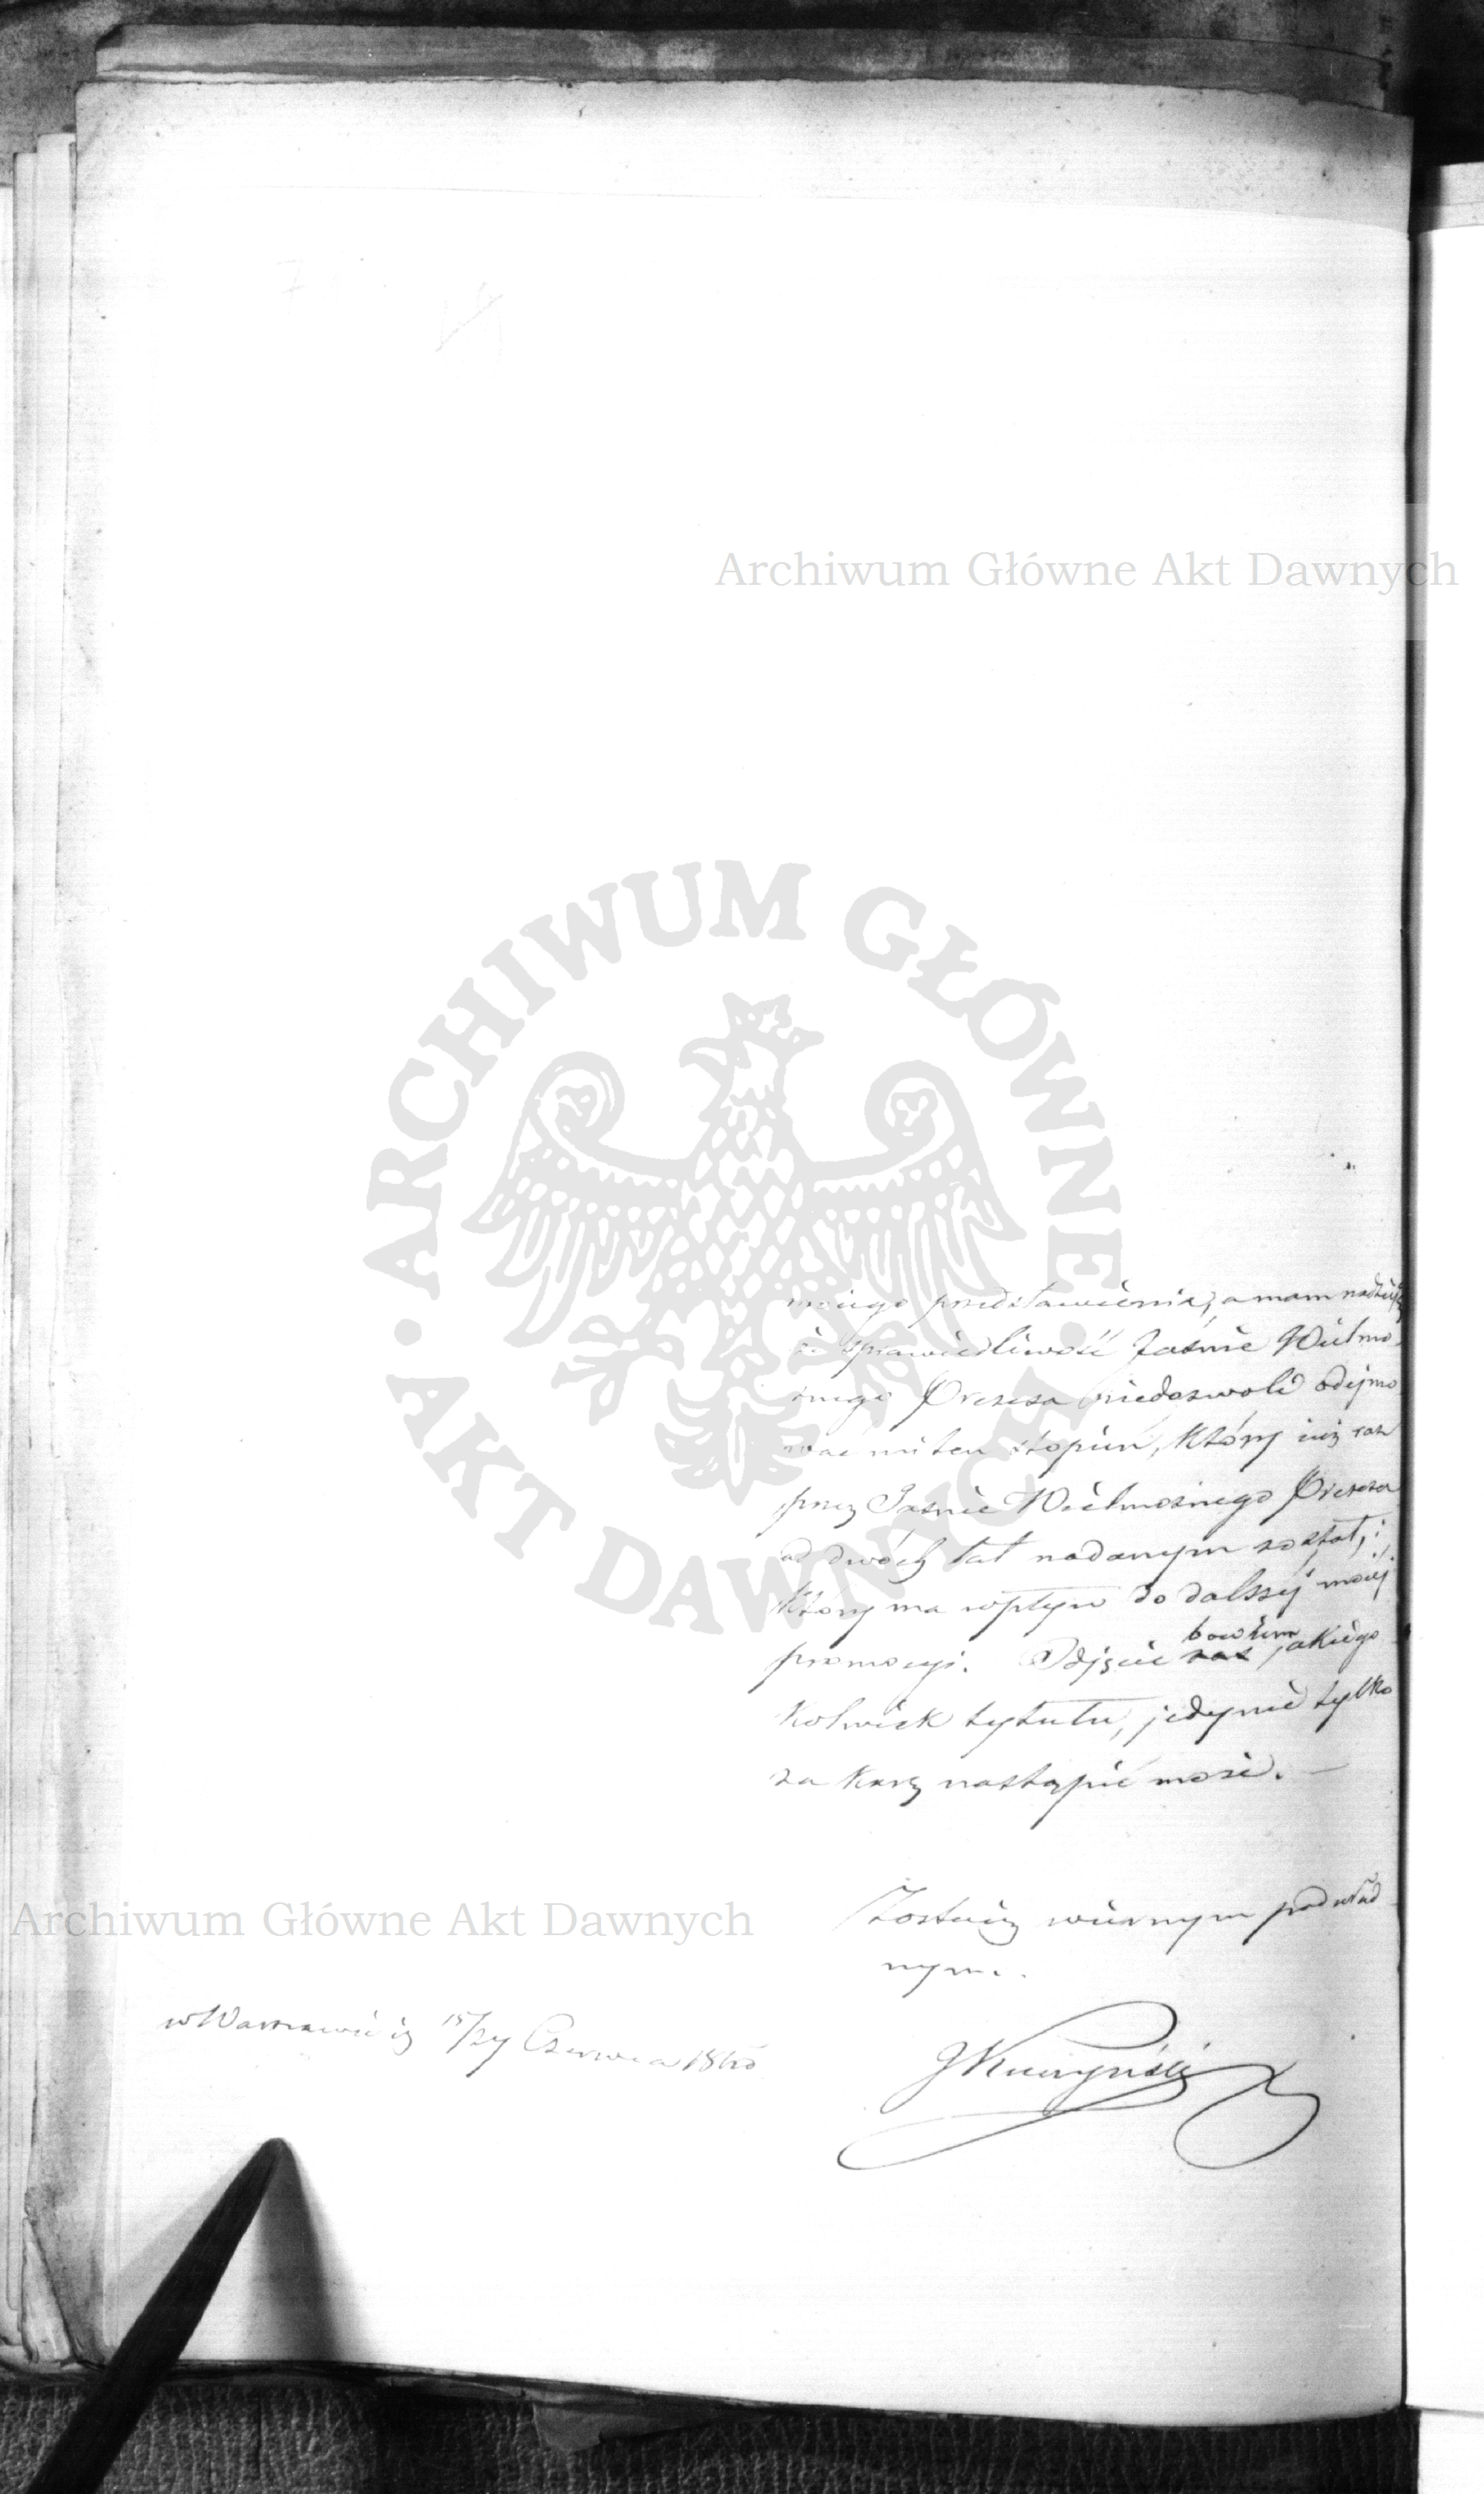 Archiwum Główne Akt Dawnych
ARCHIWUM GŁÓWNE AKT DAWNYCH
mojego przedstawienia, a mam nadzieję
że sprawiedliwość Jaśnie Wielmo-
żnego Prezesa niedozwoli odejmo-
wać mi ten stopień, który już raz
przez Jaśnie Wielmożnego Prezesa
od dwóch lat nadanym został, i
który ma wpływ do dalszéj mojéj
promocyi. Odjęcie bowiem jakiego
kolwiek tytułu, jedynie tylko
za karę nastąpić może. —
Zostaję wiernym podwład-
nym.
Archiwum Główne Akt Dawnych
w Warszawie d. Czerwca